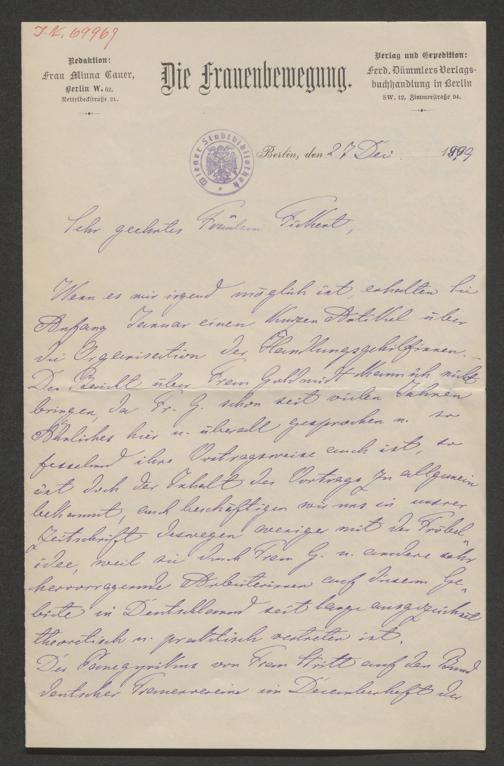 I.N. 69969
Redaktion:
Frau Minna Cauer,
Berlin W. 62,
Nettelbeckstraße 21.
Die Frauenbewegung.
Verlag und Expedition:
Ferd. Dümmlers Verlags-
buchhandlung in Berlin
SW. 12, Zimmerstraße 94.
Wiener Stadtbibliothek
Berlin, den 27 Dec. 1899
Sehr geehrtes Fräulein Fickert,
Wenn es mir irgend möglich ist, erhalten Sie
Anfang Januar einen kurzen Artikel über
die Organisation der Handlungsgehilfinnen. –
Den Bericht über Frau Goldschmidt kann ich nicht
bringen, da Fr. G. schon seit vielen Jahren
Ähnliches hier u. überall gesprochen u. so
fesselnd ihre Vortragsweise auch ist, so
ist doch der Inhalt des Vortrags zu allgemein
bekannt, auch beschäftigen wir uns in unserer
Zeitschrift deswegen weniger mit der Fröbel-
idee, weil sie durch Frau G. u. andere sehr
hervorragende Arbeiterinnen auf diesem Ge-
biete in Deutschland seit lange ausgezeichnet
theoretisch u. praktisch vertreten ist.
Der Panegyrikus von Frau Stritt auf den Bund
deutscher Frauenvereine im Decemberheft der